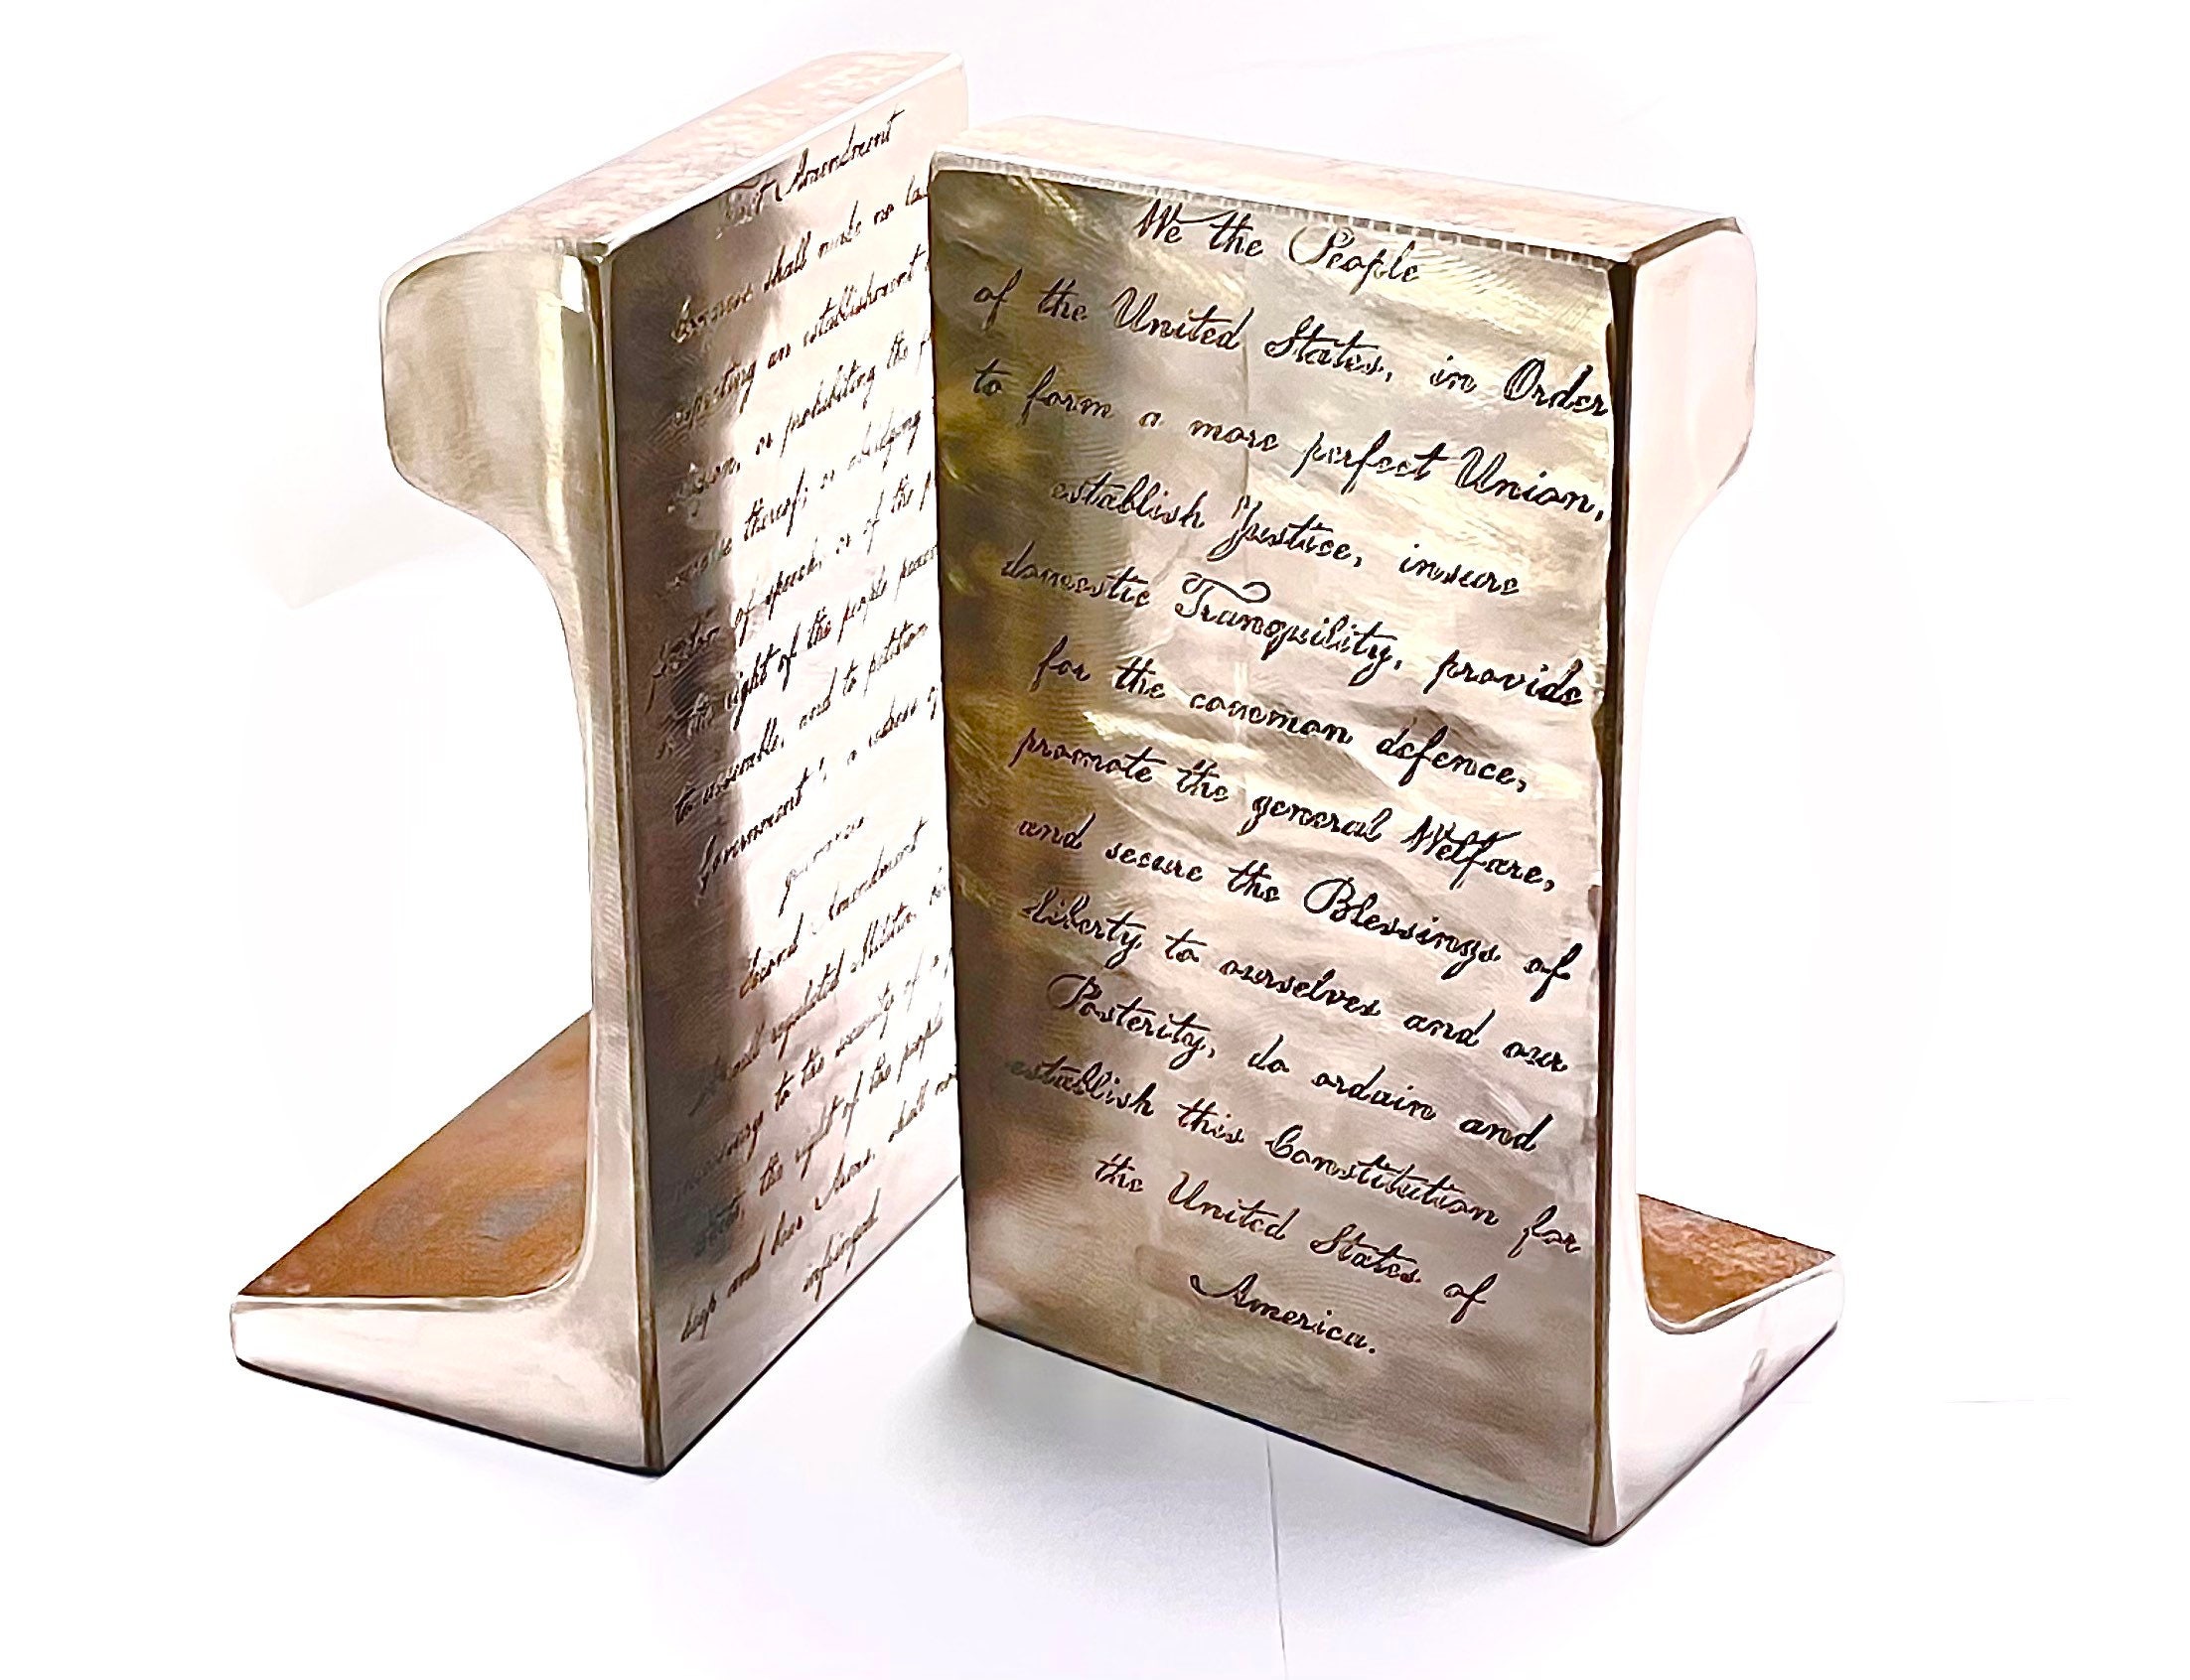 First Amendment
Congress shall make no la
respecting an establishment
or prohibiting the
thereof; or abridging
freedom of speech, or of the
or the right of the people
to assemble, and to petition
Government a redress of
grievances
Second Amendment
A well regulated Militia,
necessary to the security of a
State, the right of the people
keep and bear Arms, shall no
infringed
We the People
of the United States, in Order
to form a more perfect Union,
establish Justice, insure
domestic Tranquility, provide
for the common defence,
promote the general Welfare,
and secure the Blessings of
liberty to ourselves and our
Posterity, do ordain and
establish this Constitution for
the United States of
America.